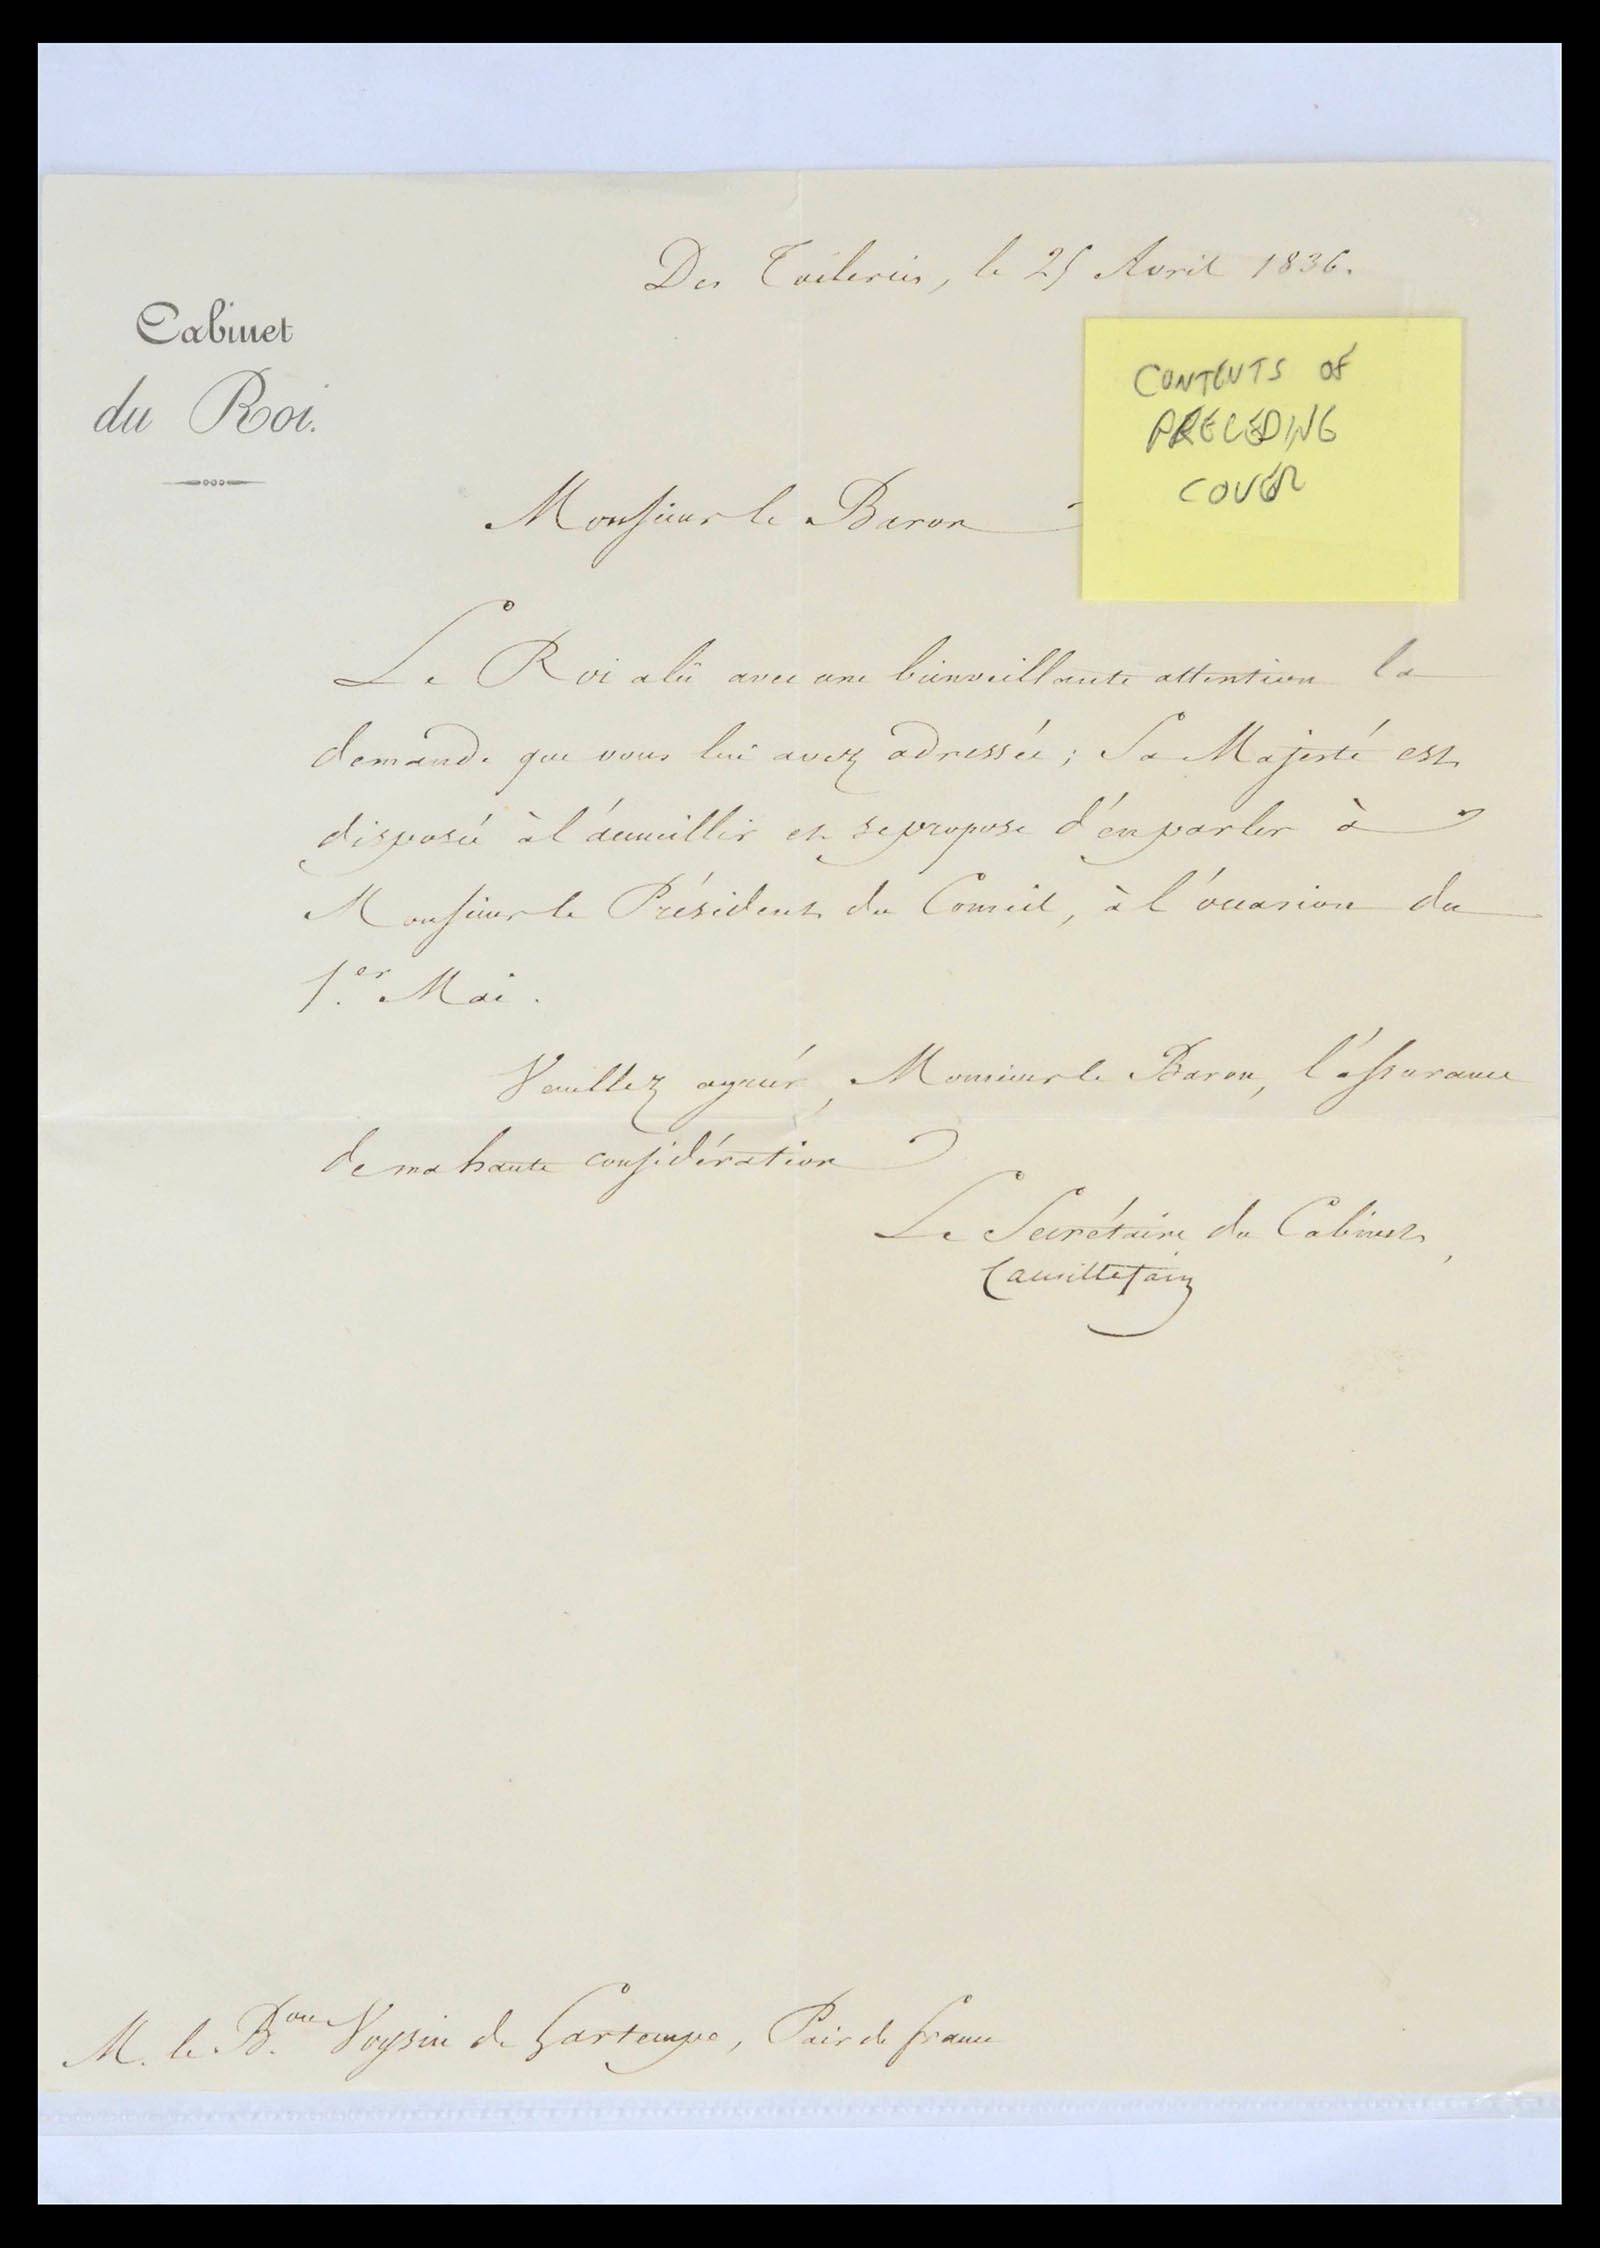 Des Tuileries, le 25 Avril 1836.
Cabinet
du Roi.
CONTENTS OF
PRECEDING
COVER
Monsieur le Baron
Le Roi a lû avec une bienveillante attention la
demande que vous lui avez adressée; Sa Majesté est
disposée à l'accueillir et se propose d'en parler à
Monsieur le Président du Conseil, à l'occasion du
1.er Mai.
Veuillez agréer, Monsieur le Baron, l'assurance
de ma haute considération
Le Secrétaire du Cabinet,
Camille Fain
M. le B.on Voysin de Gartempe, Pair de france